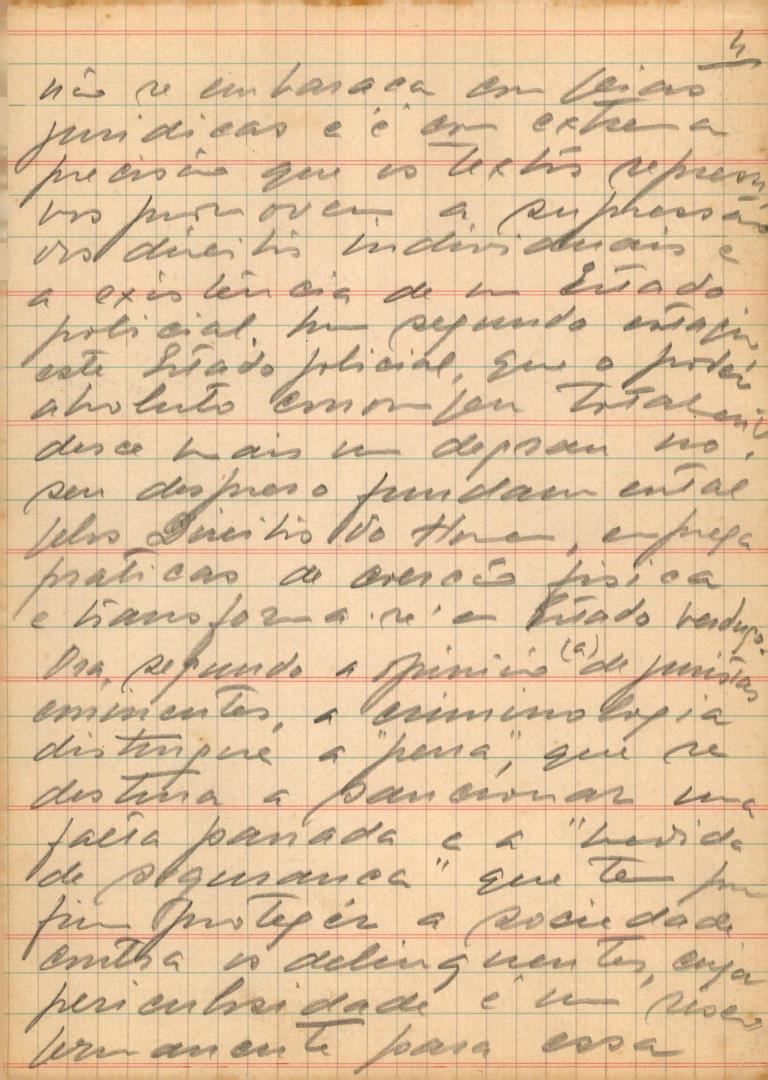 4
não se embaraça com peias
juridicas e é com extrema
precisão que os textos repressi
vos promovem a supressão
dos direitos individuais e
a existência de um Estado
policial. Num segundo estagio
este Estado policial, que o poder
absoluto corrompeu totalmente
desce mais um degrau no
seu despreso fundamental
pelos Direitos do Homem, emprega
praticas de coerção fisica
e transforma-se em Estado verdugo.
Ora, segundo a opinião (a) de juristas
eminentes, a criminologia
distingue a "pena", que se
destina a sancionar uma
falta passada e a "medida
de segurança" que tem por
fim protegêr a sociedade
contra os delinquentes, cuja
periculosidade é um risco
permanente para essa